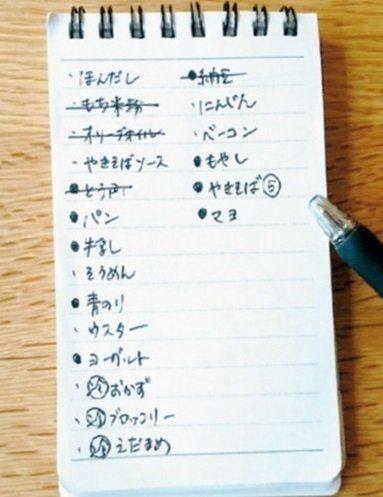 ・ほんだし
・もち米粉
・オリーブオイル
・やきそばソース
●とう
●パン
●牛乳
・そうめん
●青のり
・ウスター
●ヨーグルト
・㋹おかず
・㋹ブロッコリー
・㋹えだまめ
●納豆
・にんじん
・ベーコン
●もやし
●やきそば⑤
●マヨ